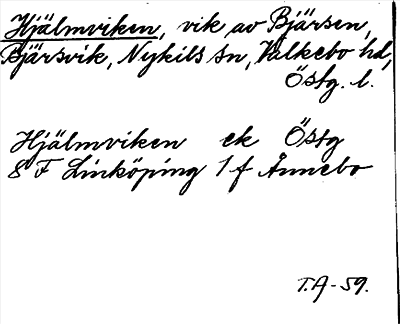 Hjälmviken, vik av Bjärsen,
Bjärsvik, Nykils sn, Valkebo hd,
Östg. l.
Hjälmviken ek Östg
8 F Linköping 1 f Ånnebo
T.A-59.